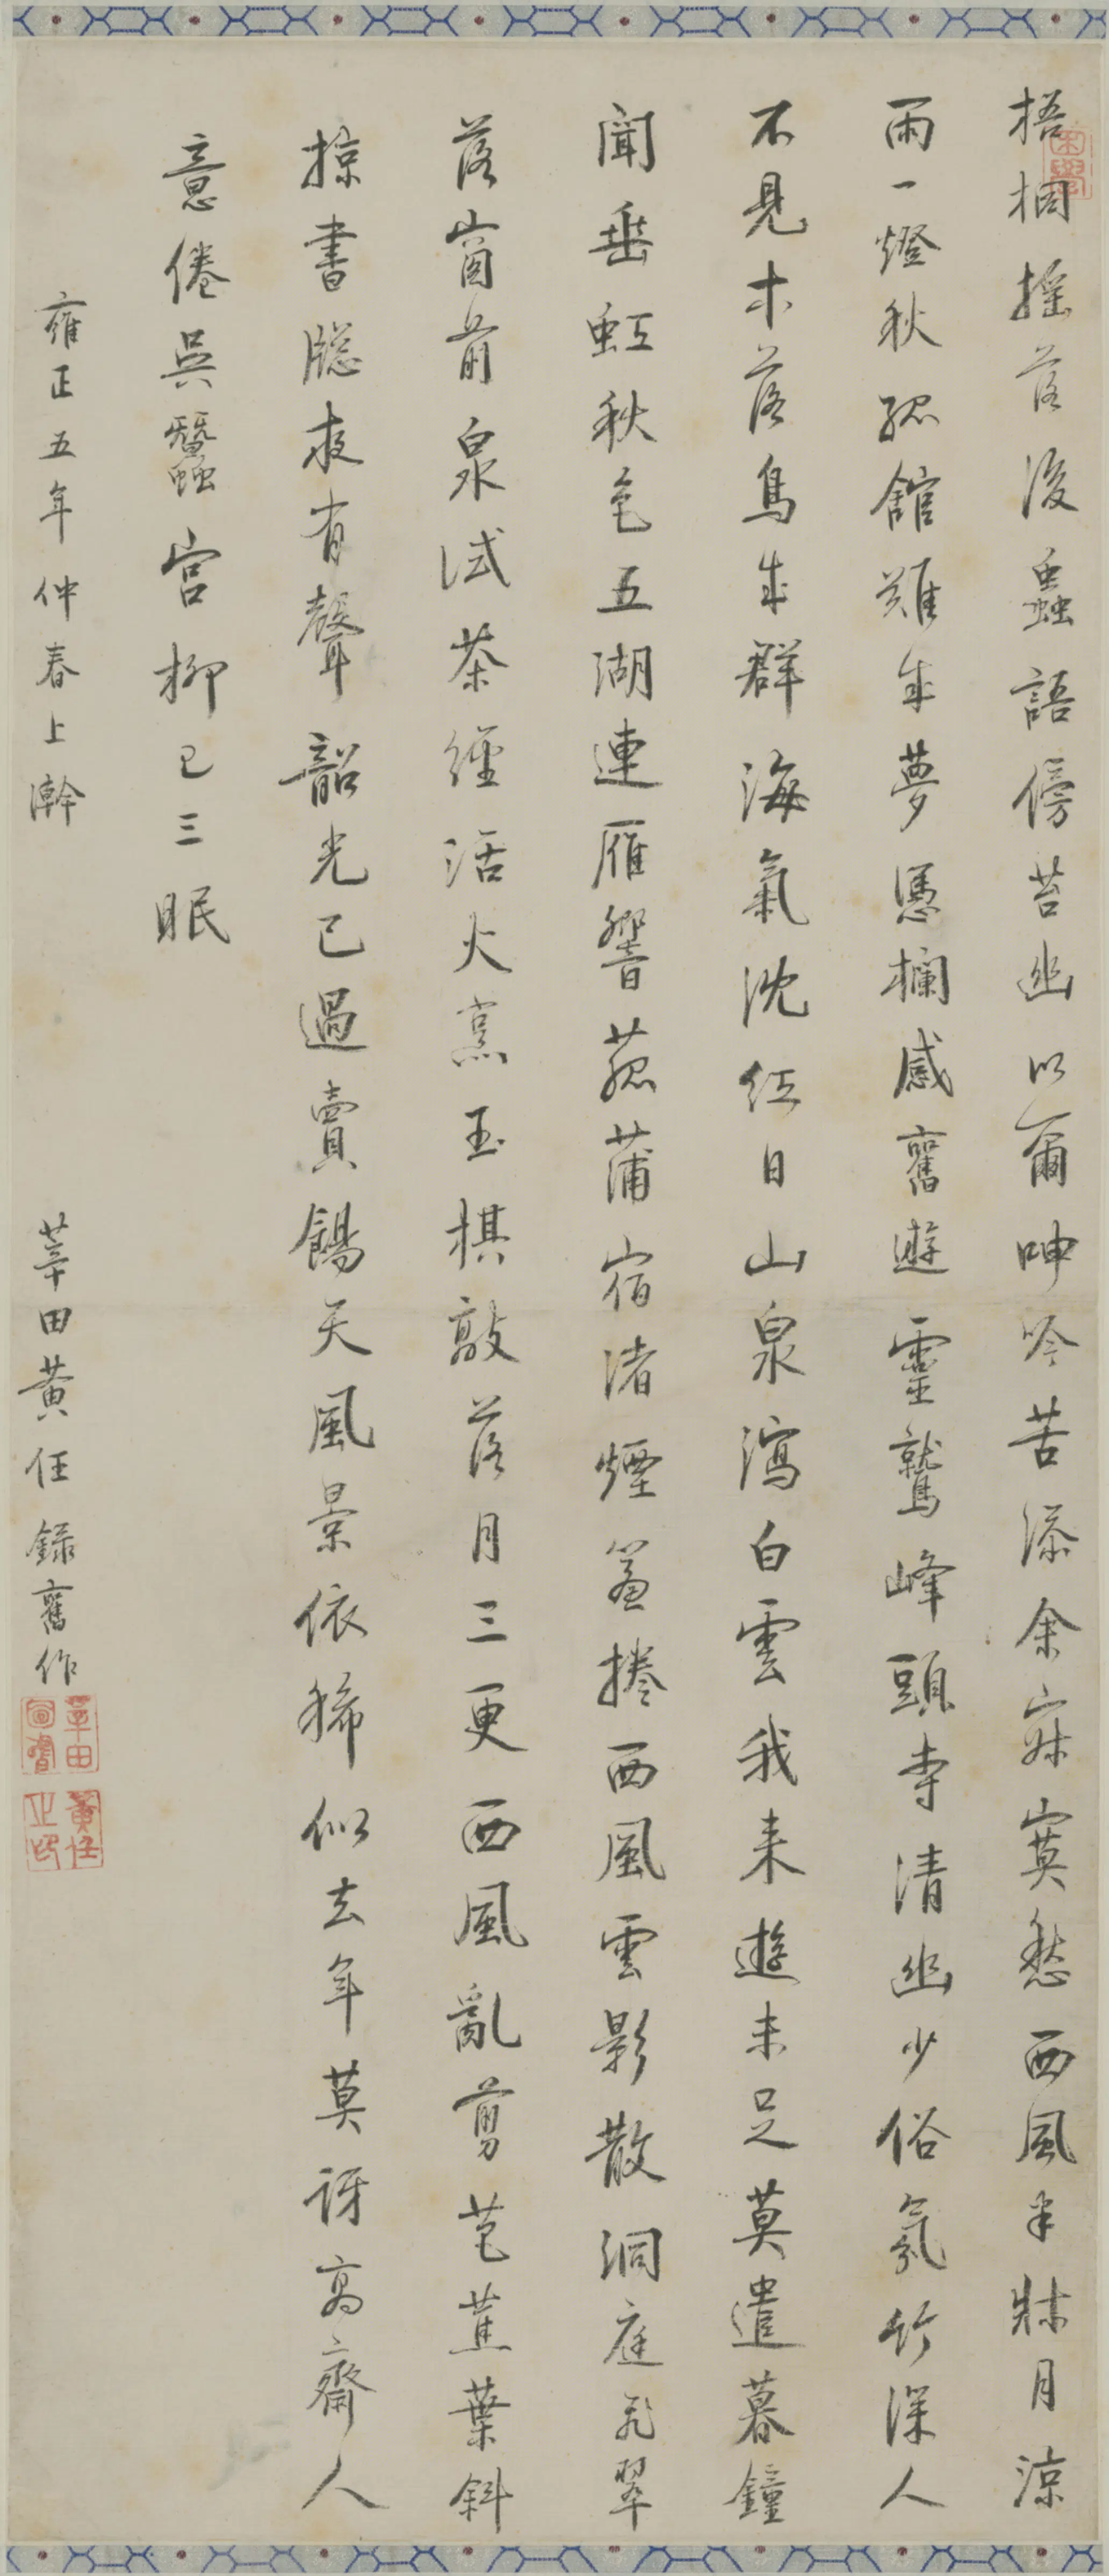 梧桐搖落後蟲語傍苔幽以爾呻吟苦添余寂寞愁西風半牀月涼
雨一燈秋孤館難成夢憑欄感舊遊靈鷲峰頭寺清幽少俗氛竹深人
不見木落鳥成群海氣沈紅日山泉瀉白雲我来遊未足莫遣暮鐘
聞垂虹秋色五湖連雁響菰蒲宿渚煙簾捲西風雲影散洞庭飛翠
落窗前泉試茶經活火烹玉棋敲落月三更西風亂剪芭蕉葉斜
掠書牕夜有聲韶光已過賣餳天風景依稀似去年莫訝高齋人
意倦吳蠶宮柳已三眠
雍正五年仲春上澣
莘田黃任錄舊作
莘田
黃任之印